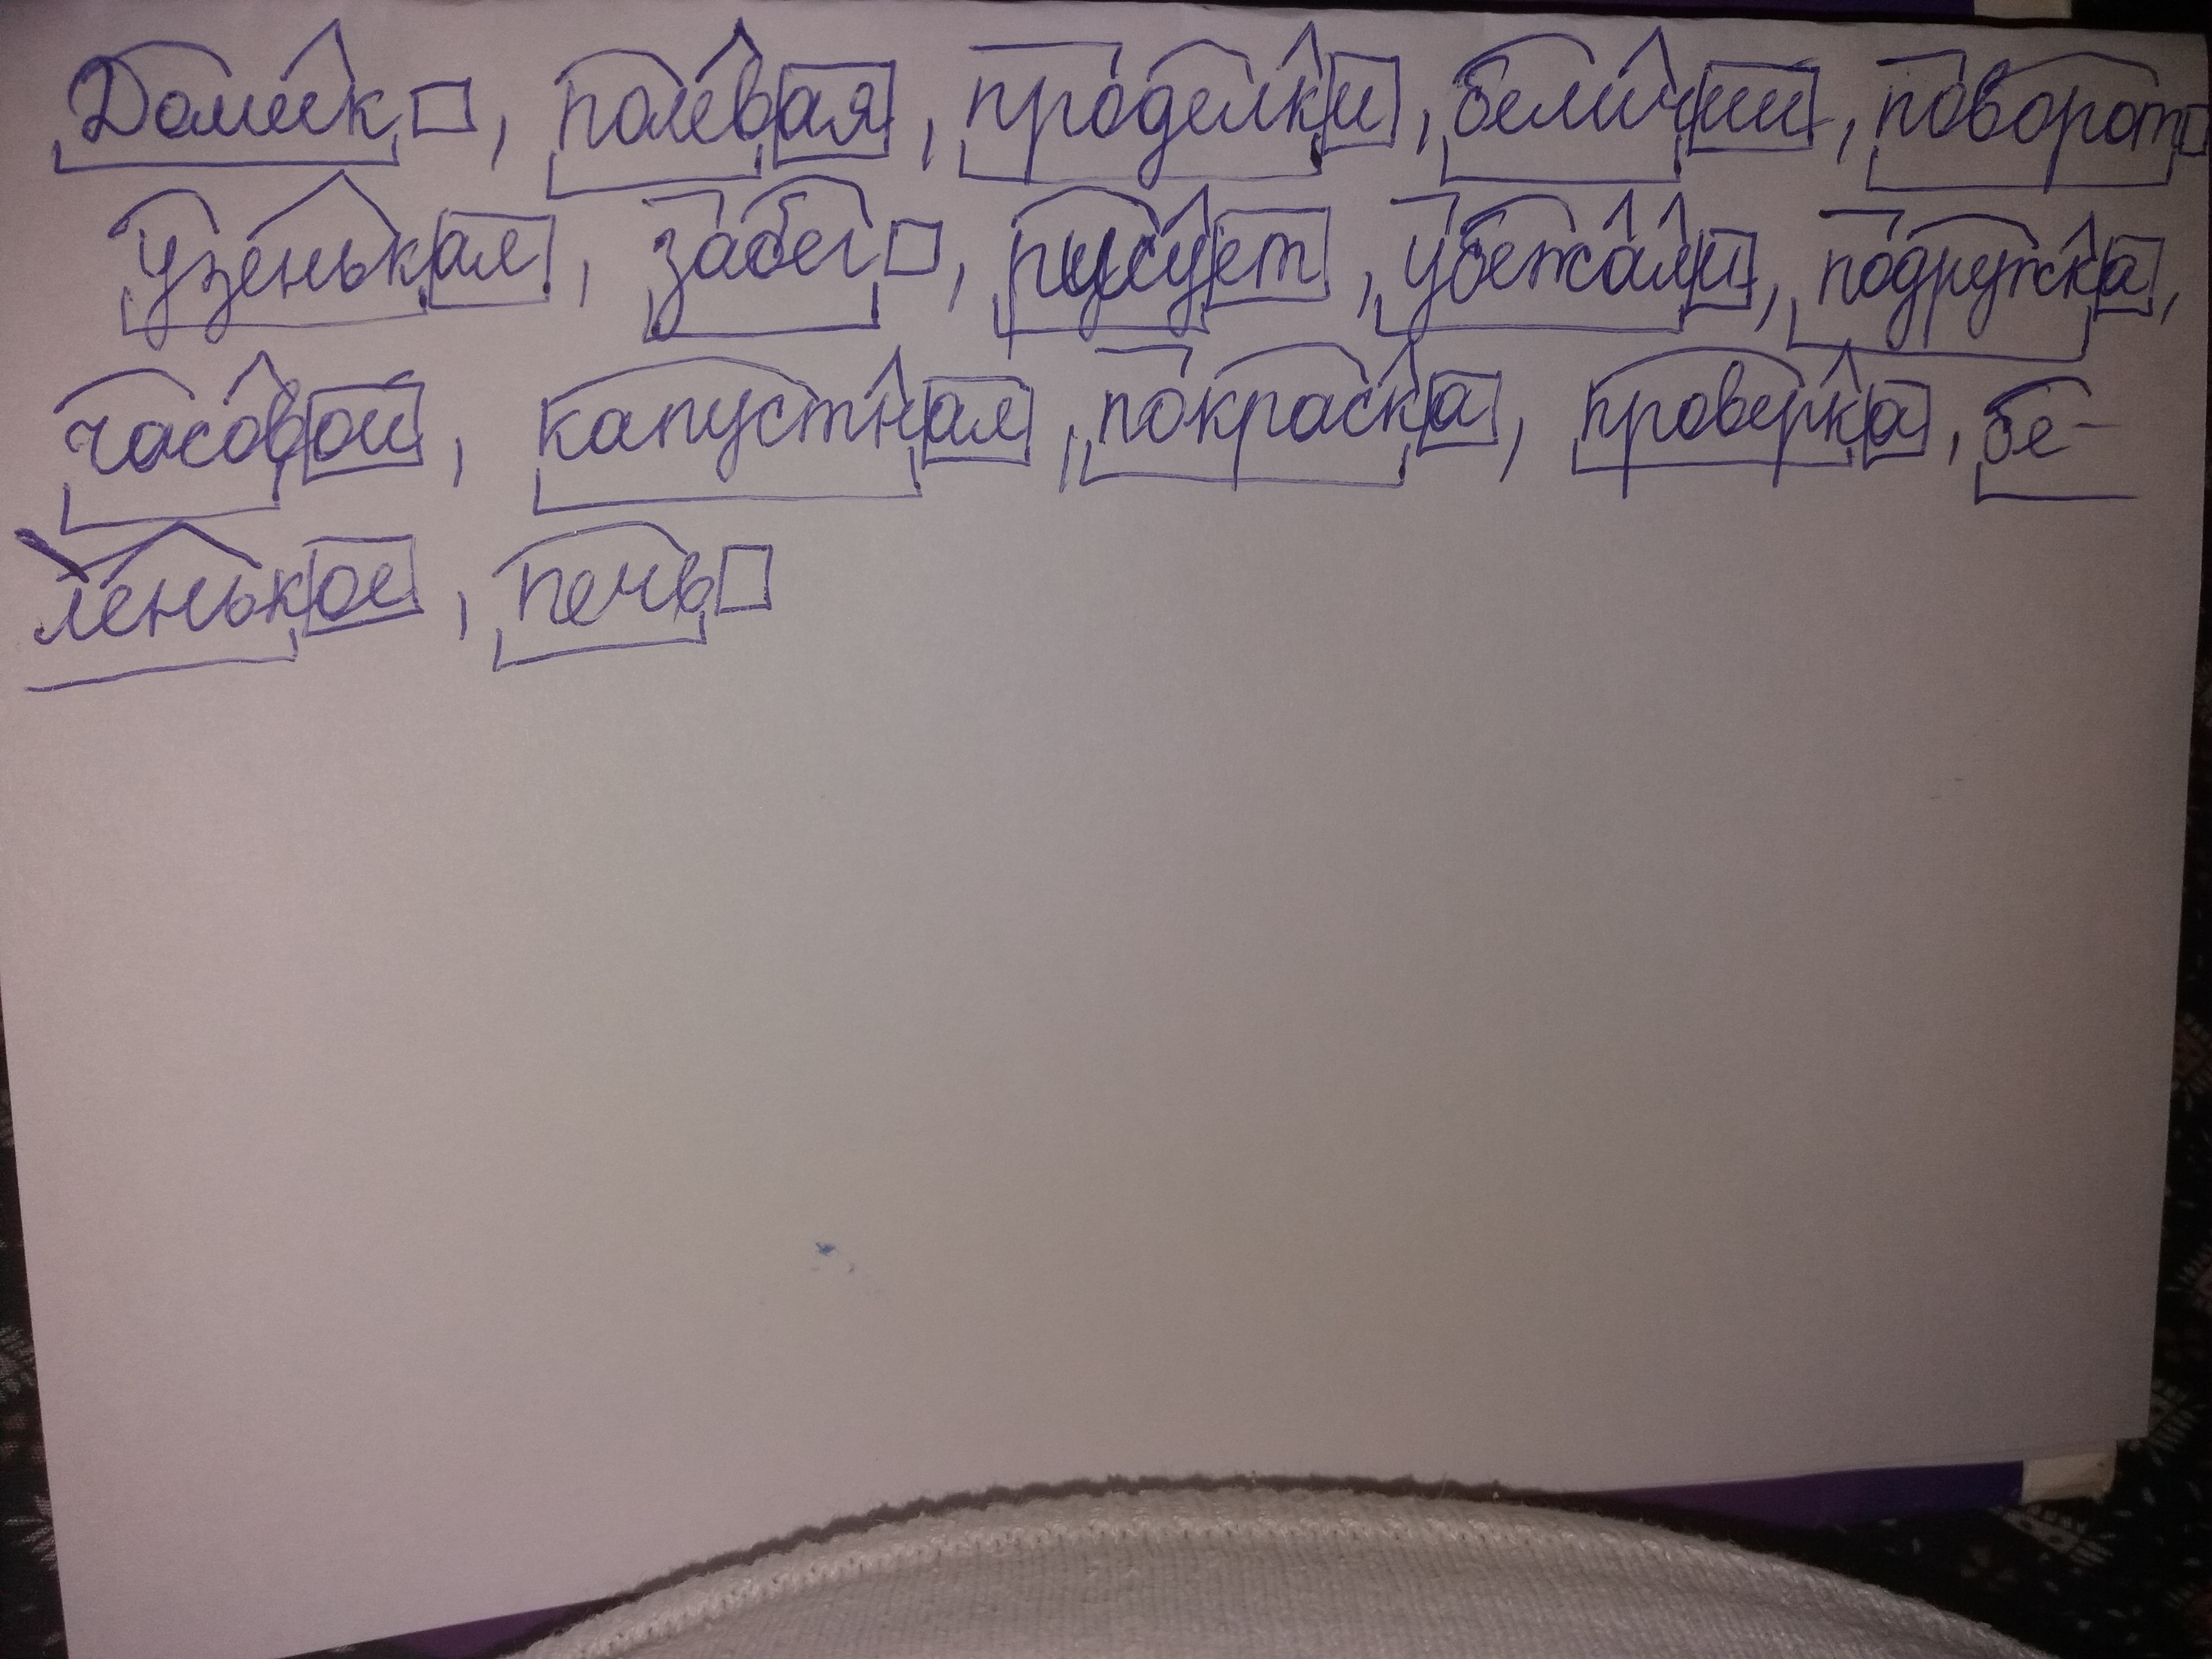 Домик, полевая, проделки, беличий, поворот
узенькая, забег, рисует, убежали, подружка,
часовой, капустная, покраска, проверка, бе-
ленькое, печь